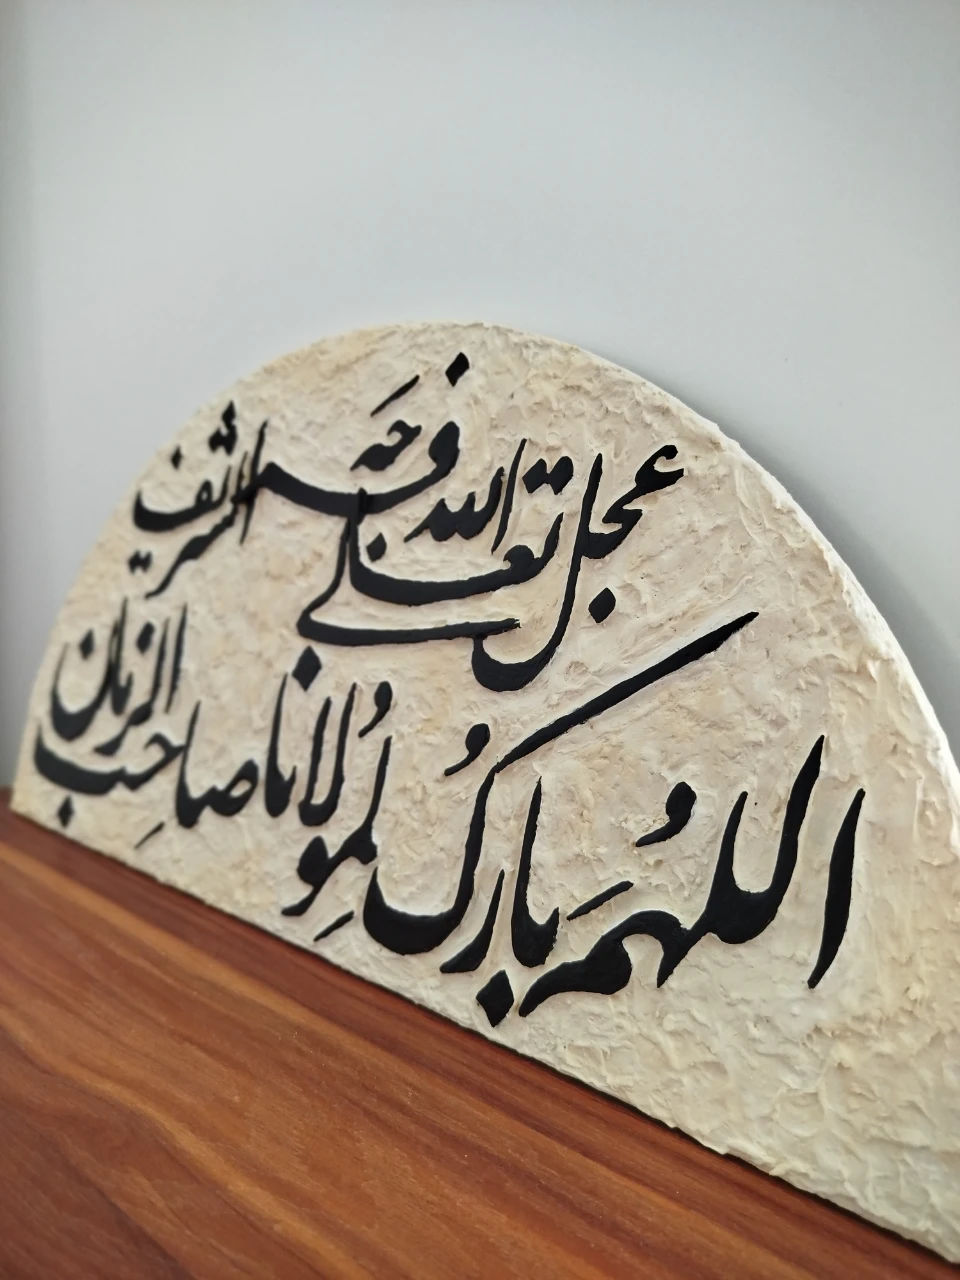 اللهُمَ بارکُ لمِولانا صاحِب الزمان
عجل الله تعالی فرَجَه الشریف